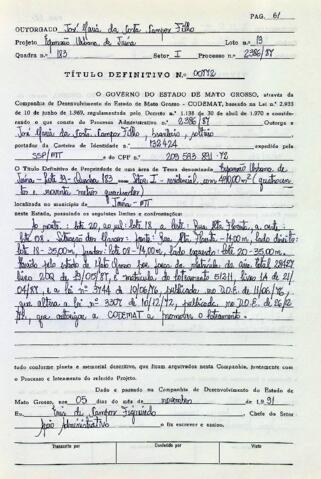 PAG. 61
OUTORGADO José Maria da Costa Campos Filho
Projeto Expansão Urbana de Juína Lote n.º 19
Quadra n.º 183 Setor I Processo n.º 2386/87
TÍTULO DEFINITIVO N.º 00772
O GOVERNO DO ESTADO DE MATO GROSSO, através da
Companhia de Desenvolvimento do Estado de Mato Grosso - CODEMAT, baseado na Lei n.º 2.933
de 10 de junho de 1969, regulamentada pelo Decreto n.º 1.138 de 30 de abril de 1970 e considerando
o que consta do Processo Administrativo n.º 2386/87 Outorga a
José Maria da Costa Campos Filho, brasileiro, solteiro
portador da Carteira de Identidade n.º 132424 expedida pela
SSP/MT e do CPF n.º 209 593 891-72
O Título Definitivo de Propriedade de uma área de Terra denominada Expansão Urbana de
Juína - Lote 19 - Quadra 183 - Setor I - residencial, com 490,00m² (quatrocen
tos e noventa metros quadrados)
localizada no município de Juína-MT
neste Estado, possuindo os seguintes limites e confrontações:
Ao norte: lote 20, ao sul: lote 18, a leste: Rua Sta. Vicente, a oeste:
lote 08. frente: Rua - 14,00m, lado direito:
lote 18 - 35,00m, fundos: lote 08 - 14,00m, lado esquerdo: lote 20 - 35,00m.
pelo estado de Mato Grosso matrícula da área total 28427
livro 2DQ de 21/05/87, e matrícula do loteamento 51211, livro 14 de 21/
04/87, e a lei nº 3744 de 10/06/76, publicada no D.O.E. de 11/06/76,
que altera a lei nº 3307 de 18/12/72, publicada no D.O.E. de 26/12
72, que autoriza a CODEMAT a promover o loteamento.
tudo conforme planta e memorial descritivo, que ficam arquivados nesta Companhia, juntamente com
o Processo e loteamento do referido Projeto.
Dado e passado na Companhia de Desenvolvimento do Estado de
Mato Grosso, aos 05 dias do mês de novembro de 1991
Eu, de Campos Figueiredo Chefe do Setor
Apoio Administrativo o fiz escrever e assino.
Transcrito por Conferido por Visto